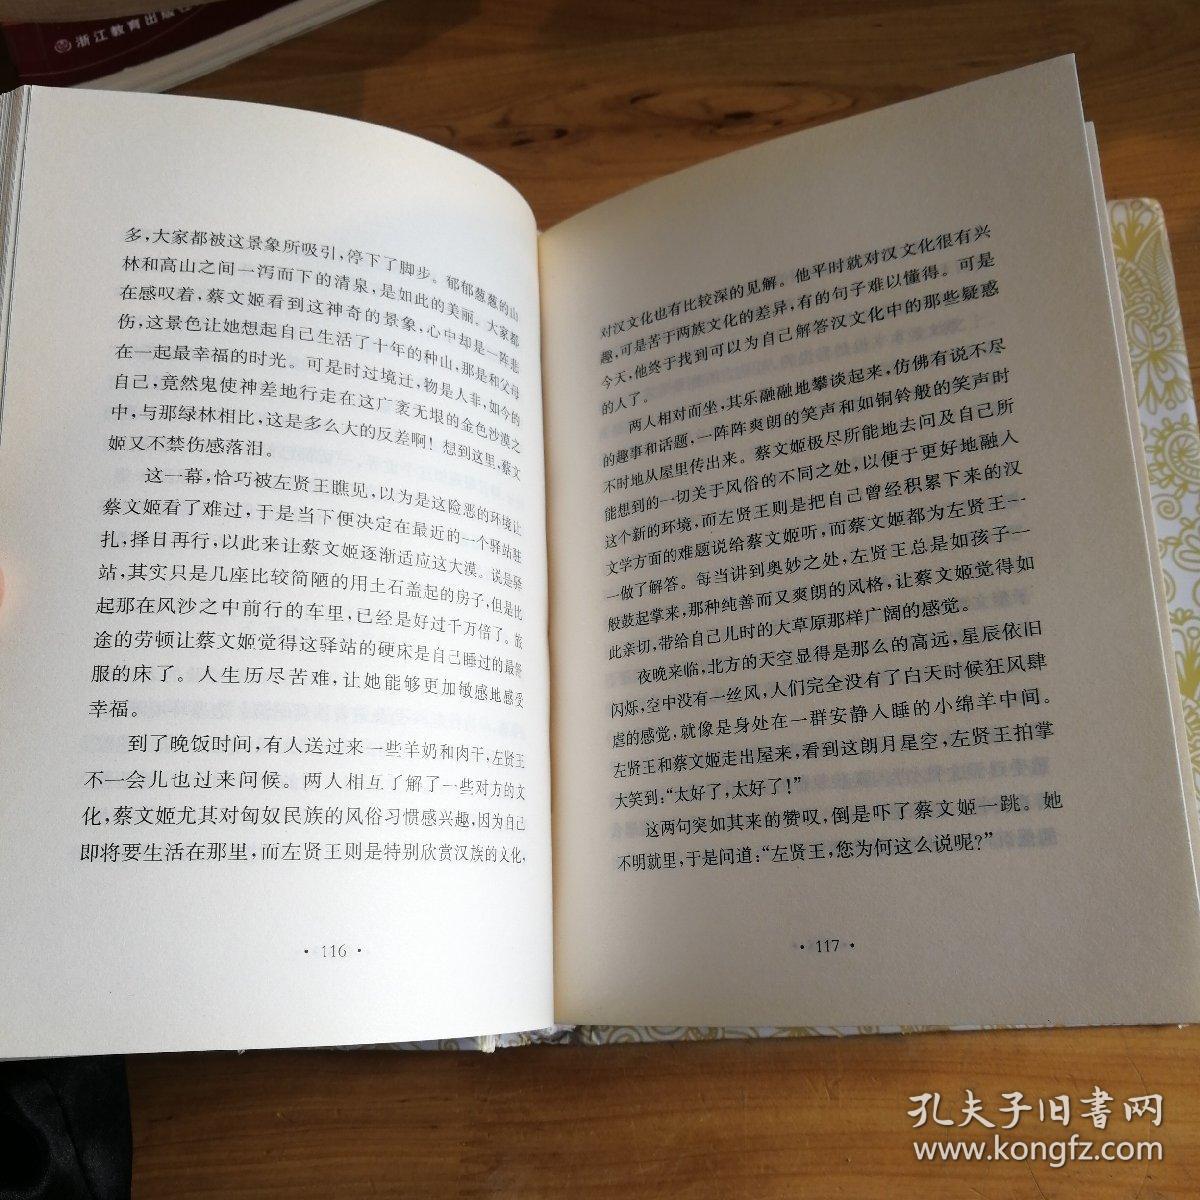 浙江教育出版
多，大家都被这景象所吸引，停下了脚步。郁郁葱葱的山
林和高山之间一泻而下的清泉，是如此的美丽。大家都
在感叹着，蔡文姬看到这神奇的景象，心中却是一阵悲
伤，这景色让她想起自己生活了十年的种山，那是和父母
在一起最幸福的时光。可是时过境迁，物是人非，如今的
自己，竟然鬼使神差地行走在这广袤无垠的金色沙漠之
中，与那绿林相比，这是多么大的反差啊！想到这里，蔡文
姬又不禁伤感落泪。
这一幕，恰巧被左贤王瞧见，以为是这险恶的环境让
蔡文姬看了难过，于是当下便决定在最近的一个驿站驻
扎，择日再行，以此来让蔡文姬逐渐适应这大漠。说是驿
站，其实只是几座比较简陋的用土石盖起的房子，但是比
起那在风沙之中前行的车里，已经是好过千万倍了。旅
途的劳顿让蔡文姬觉得这驿站的硬床是自己睡过的最舒
服的床了。人生历尽苦难，让她能够更加敏感地感受
幸福。
到了晚饭时间，有人送过来一些羊奶和肉干，左贤王
不一会儿也过来问候。两人相互了解了一些对方的文
化，蔡文姬尤其对匈奴民族的风俗习惯感兴趣，因为自己
即将要生活在那里，而左贤王则是特别欣赏汉族的文化，
·116·
对汉文化也有比较深的见解。他平时就对汉文化很有兴
趣，可是苦于两族文化的差异，有的句子难以懂得。可是
今天，他终于找到可以为自己解答汉文化中的那些疑惑
的人了。
两人相对而坐，其乐融融地攀谈起来，仿佛有说不尽
的趣事和话题，一阵阵爽朗的笑声和如铜铃般的笑声时
不时地从屋里传出来。蔡文姬极尽所能地去问及自己所
能想到的一切关于风俗的不同之处，以便于更好地融入
这个新的环境，而左贤王则是把自己曾经积累下来的汉
文学方面的难题说给蔡文姬听，而蔡文姬都为左贤王一
一做了解答。每当讲到奥妙之处，左贤王总是如孩子一
般鼓起掌来，那种纯善而又爽朗的风格，让蔡文姬觉得如
此亲切，带给自己儿时的大草原那样广阔的感觉。
夜晚来临，北方的天空显得是那么的高远，星辰依旧
闪烁，空中没有一丝风，人们完全没有了白天时候狂风肆
虐的感觉，就像是身处在一群安静入睡的小绵羊中间。
左贤王和蔡文姬走出屋来，看到这朗月星空，左贤王拍掌
大笑到：“太好了，太好了！”
这两句突如其来的赞叹，倒是吓了蔡文姬一跳。她
不明就里，于是问道：“左贤王，您为何这么说呢？”
·117·
孔夫子旧书网
www.kongfz.com